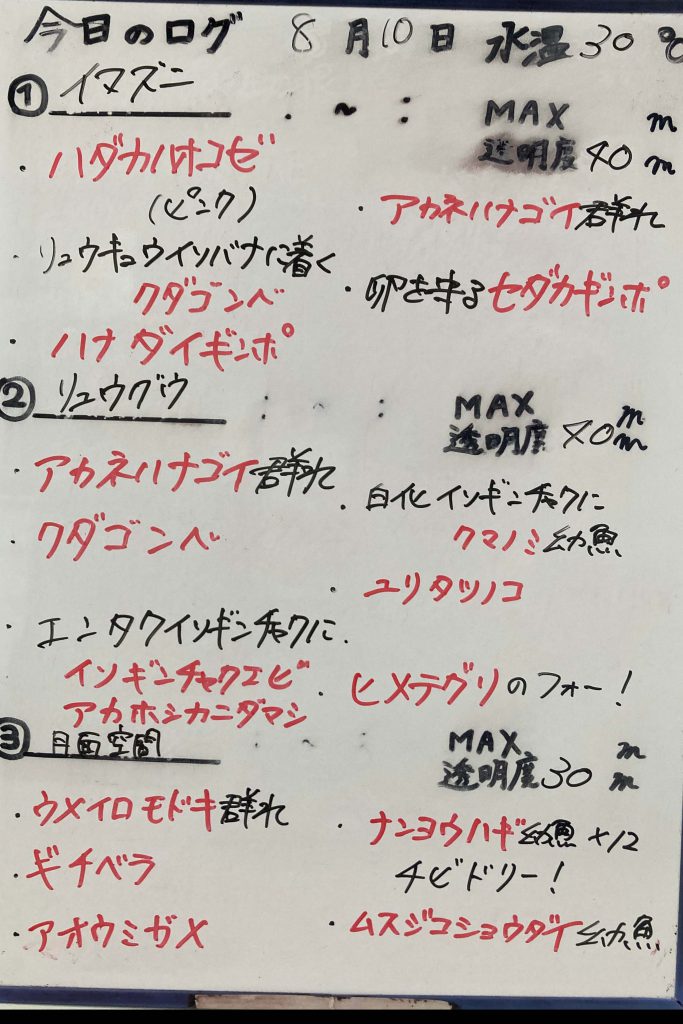 今日のログ 8月10日 水温30℃
① イマズニ . ~ : MAX m
透明度40m
・ハダカハオコゼ
(ピンク)
・リュウキュウイソバナに着く
クダゴンベ
・ハナダイギンポ
・アカネハナゴイ群れ
・卵を守るセダカギンポ
② リュウグウ : ~ : MAX m
透明度40m
・アカネハナゴイ群れ
・クダゴンベ
・エンタクイソギンチャクに
イソギンチャクエビ
アカホシカニダマシ
・白化イソギンチャクに
クマノミ幼魚
・ユリタツノコ
・ヒメテグリのフォー!
③ 月面空間 : ~ : MAX m
透明度30m
・ウメイロモドキ群れ
・ギチベラ
・アオウミガメ
・ナンヨウハギ幼魚×12
チビドリー!
・ムスジコショウダイ幼魚